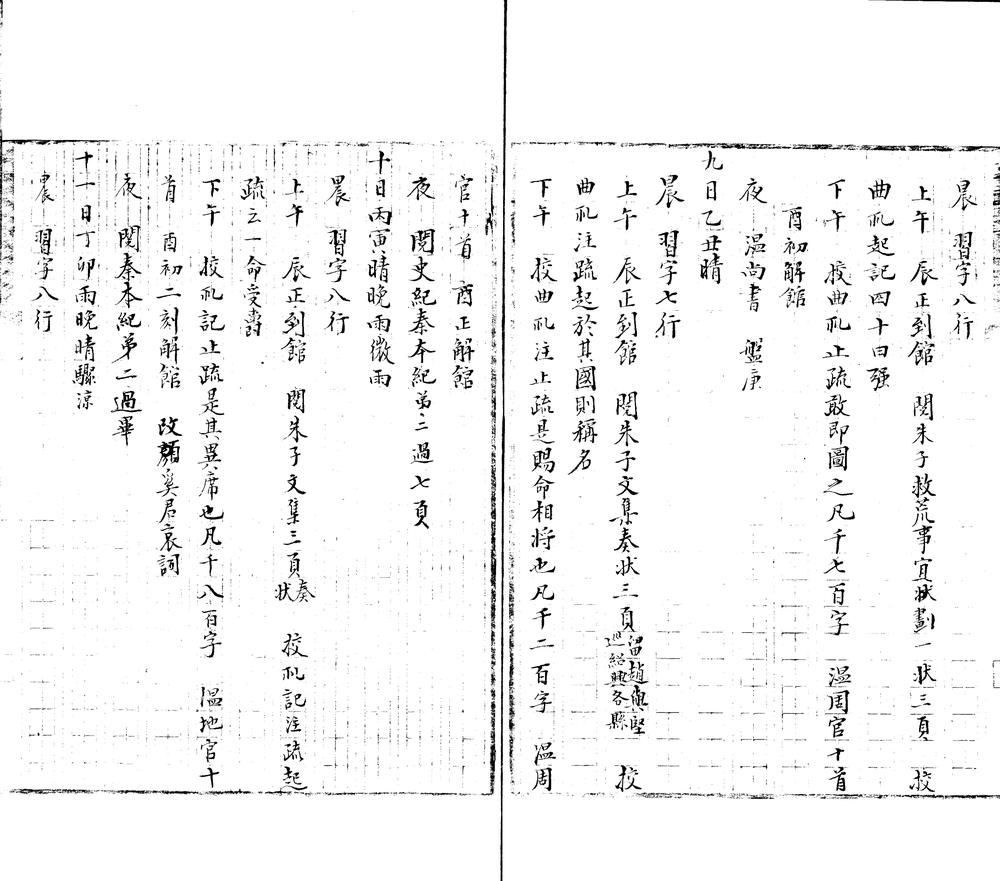 晨　習字八行
上午　辰正到館　閱朱子救荒事宜狀劃一狀三頁　挍
曲礼起記四十曰强
下午　挍曲礼止疏敢即圖之凡千七百字　溫周官十首
酉初解館
夜　溫尚書　盤庚
九日乙丑晴
晨　習字七行
上午　辰正到館　閱朱子文集奏狀三頁留趙與堅巡紹興各縣　挍
曲礼注疏起於其國則稱名
下午　挍曲礼注止疏是賜命相將也凡千二百字　溫周
官十首　酉正解館
夜　閱史紀秦本紀第二過七頁
十日丙寅晴晚雨微雨
晨　習字八行
上午　辰正到館　閱朱子文集三頁奏狀　挍礼記注疏起
疏云一命受爵
下午　挍礼記止疏是其異席也凡千八百字　溫地官十
首　酉初二刻解館　改顏奚君哀詞
夜　閱秦本紀第二過畢
十一日丁卯雨晚晴驟涼
晨　習字八行